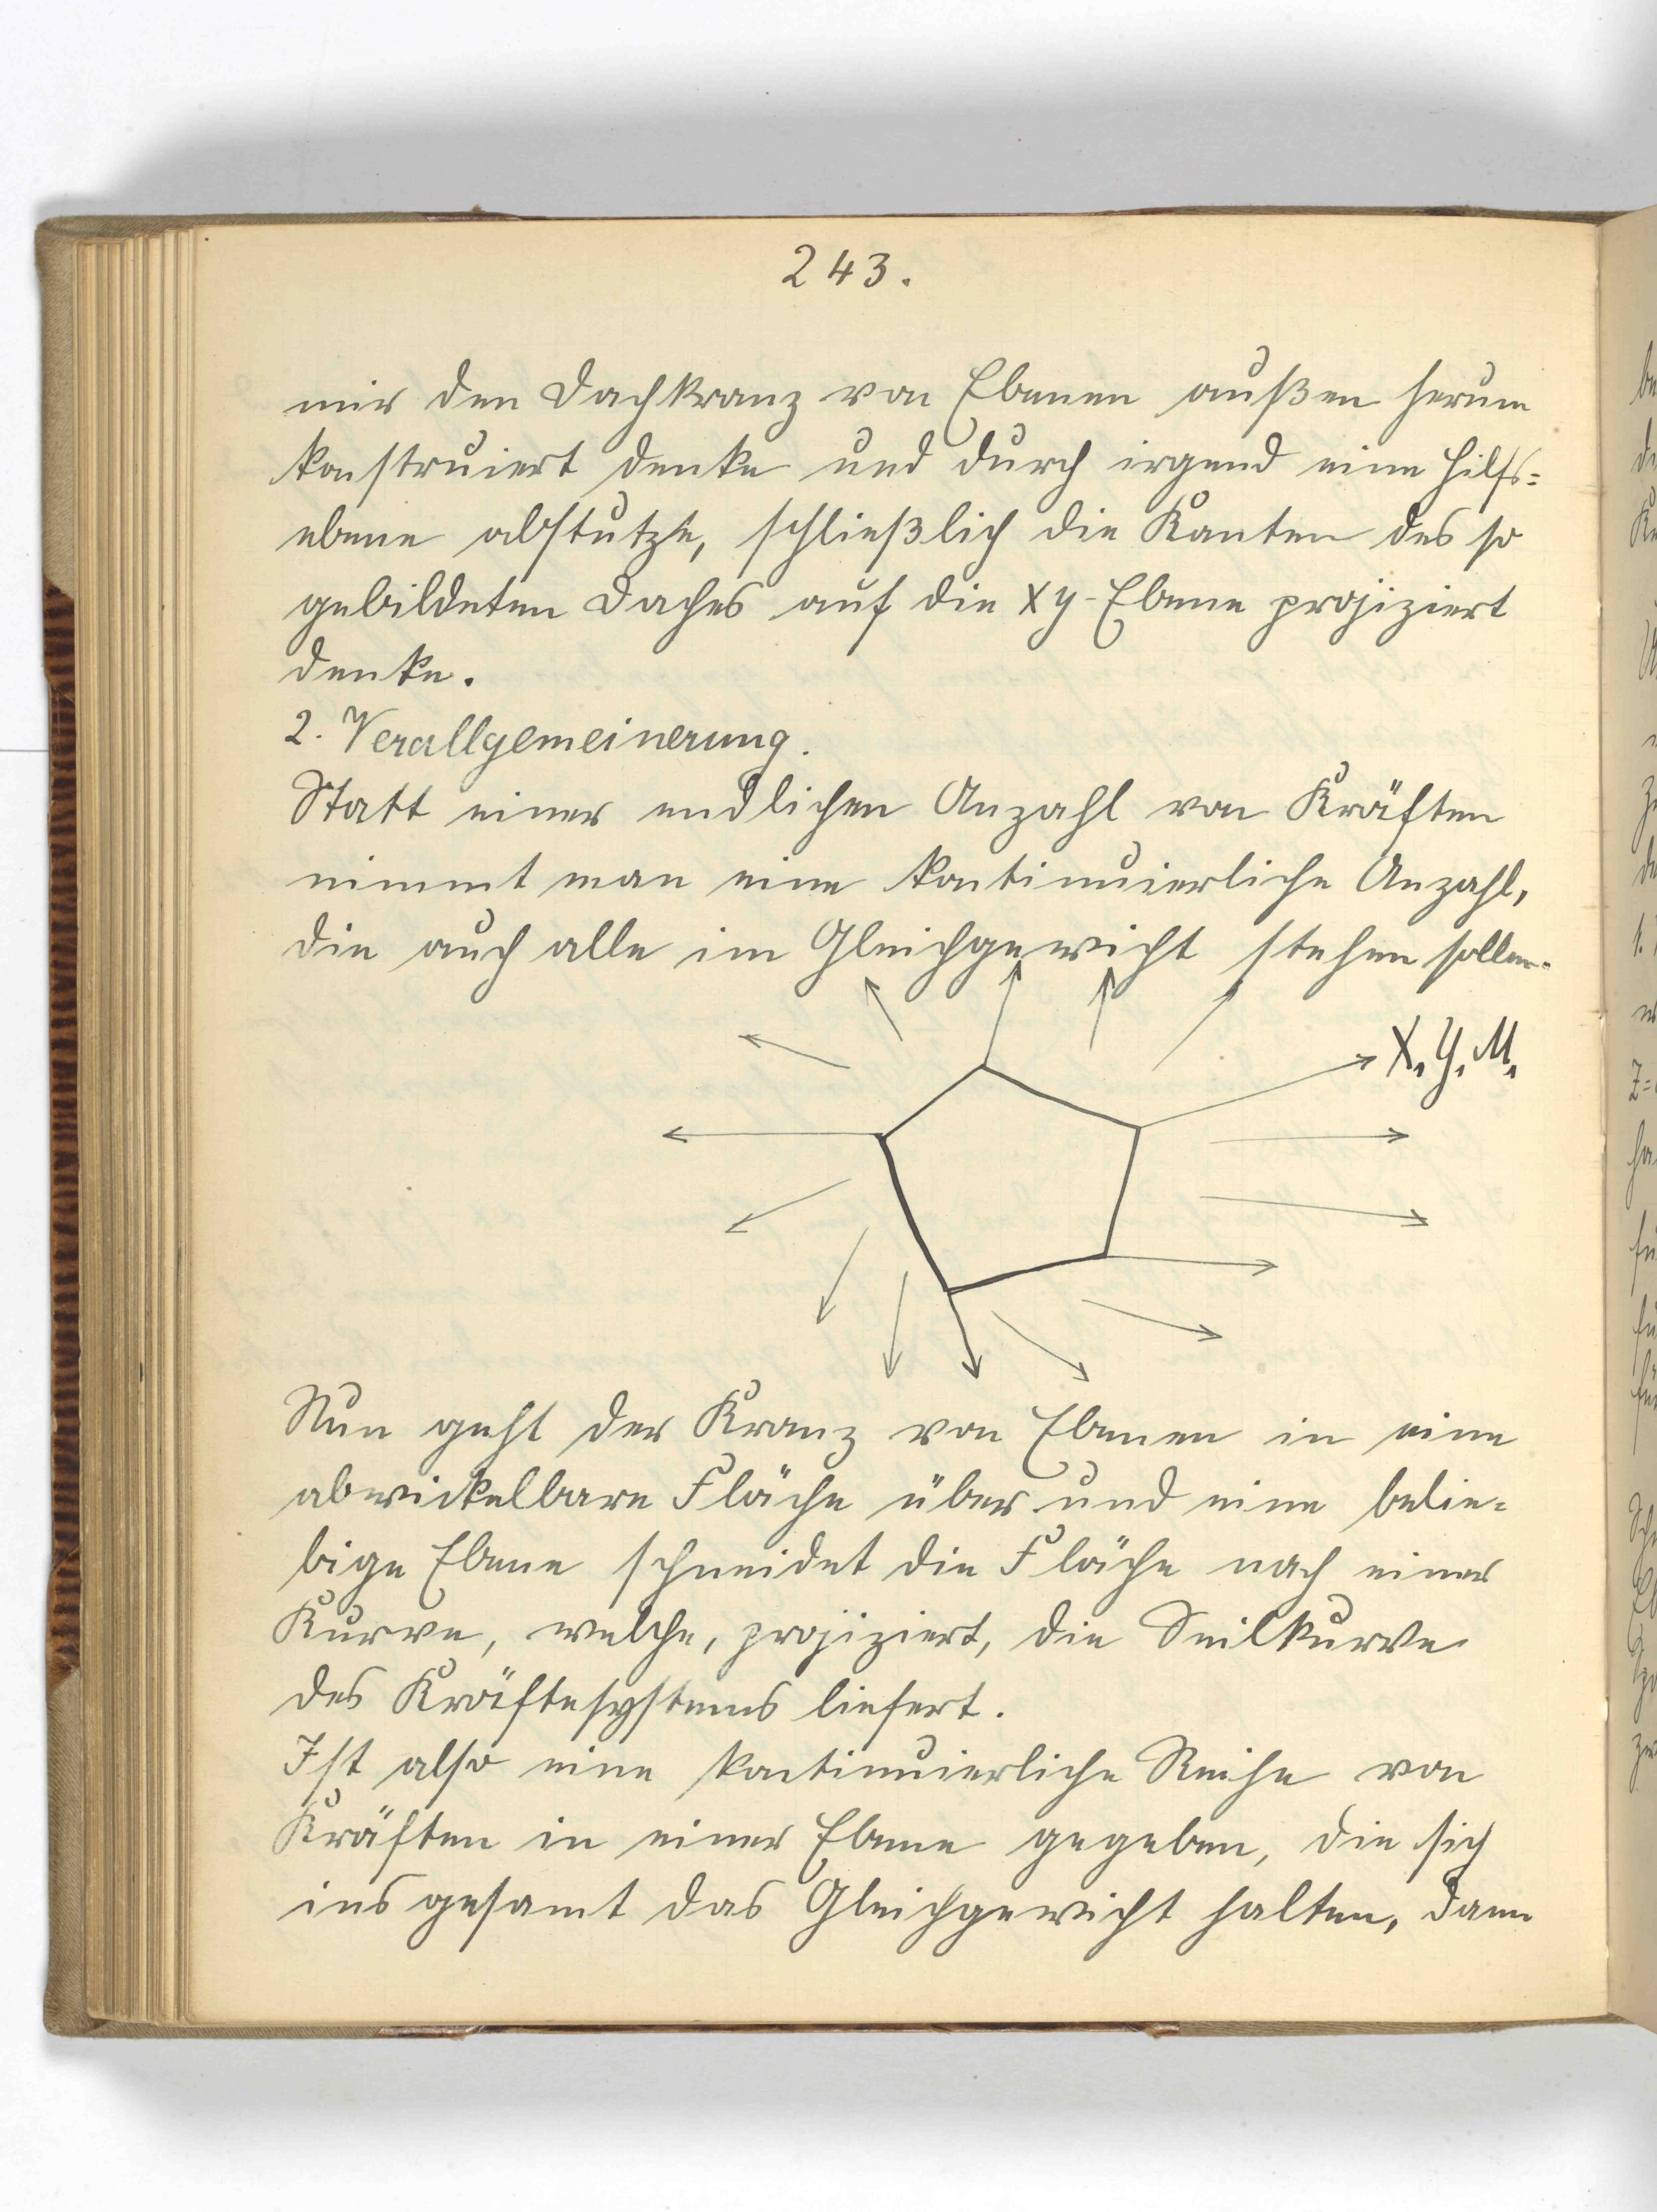 243.
mir den Dachkranz von Ebenen außen herum
konstruiert denke und durch irgend eine Hilfs=
ebene abstutze, schließlich die Kanten des so
gebildeten Daches auf die xy-Ebene projiziert
denke.
2. Verallgemeinerung.
Statt einer endlichen Anzahl von Kräften
nimmt man eine kontinuierliche Anzahl,
die auch alle im Gleichgewicht stehen sollen.
X. Y. M.
Nun geht der Kranz von Ebenen in eine
abwickelbare Fläche über und eine belie=
bige Ebene schneidet die Fläche nach einer
Kurve, welche, projiziert, die Seilkurve
des Kräftesystems liefert.
Ist also eine kontinuierliche Reihe von
Kräften in einer Ebene gegeben, die sich
ins gesamt das Gleichgewicht halten, dann